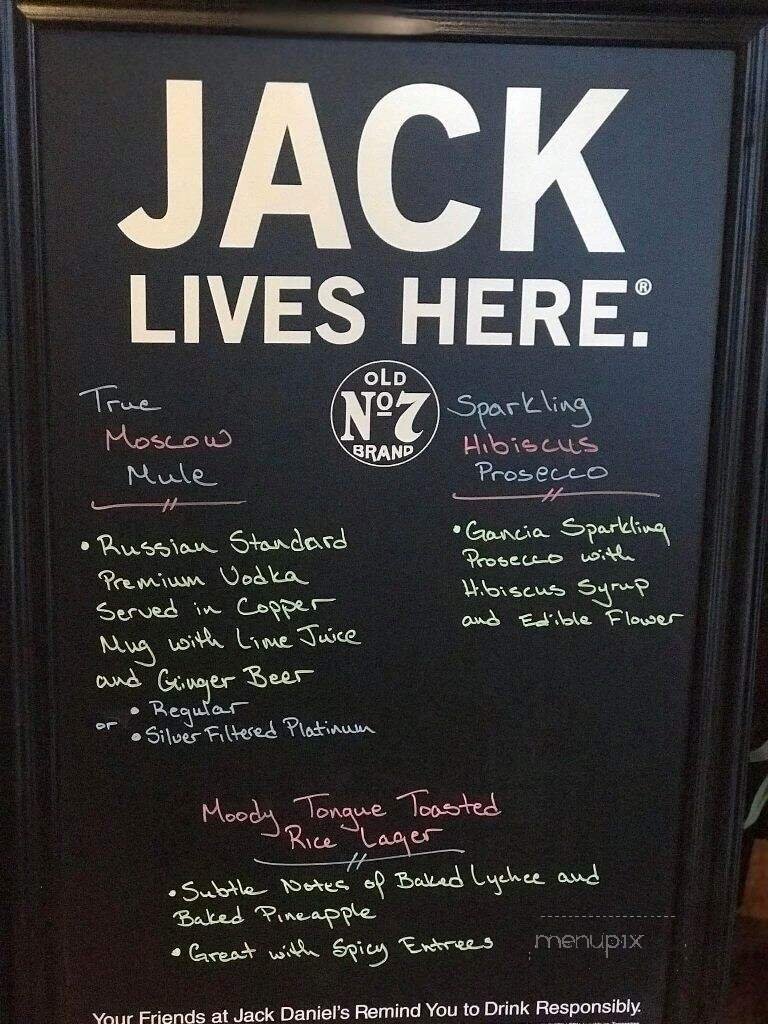 JACK
LIVES HERE.®
OLD
Nº7
BRAND
True
Moscow
Mule
• Russian Standard
Premium Vodka
Served in Copper
Mug with Lime Juice
and Ginger Beer
• Regular
or • Silver Filtered Platinum
Sparkling
Hibiscus
Prosecco
• Gancia Sparkling
Prosecco with
Hibiscus Syrup
and Edible Flower
Moody Tongue Toasted
Rice Lager
• Subtle Notes of Baked Lychee and
Baked Pineapple
• Great with Spicy Entrees
menupix
Your Friends at Jack Daniel's Remind You to Drink Responsibly.